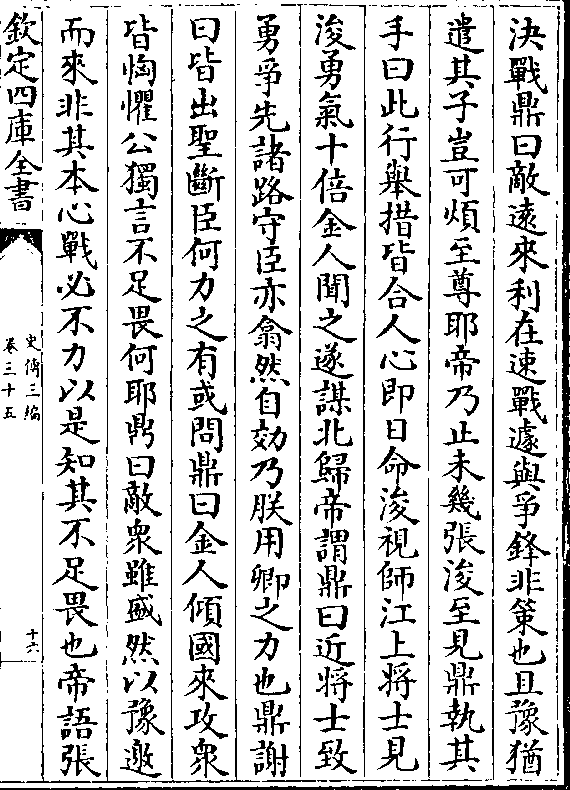 決戰鼎曰敵逺來利在速戰遽與爭鋒非策也且豫猶
遣其子豈可煩至尊耶帝乃止未幾張浚至見鼎執其
手曰此行舉措皆合人心即日命浚視師江上將士見
浚勇氣十倍金人聞之遂謀北歸帝謂鼎曰近將士致
勇爭先諸路守臣亦翕然自効乃朕用卿之力也鼎謝
曰皆出聖斷臣何力之有或問鼎曰金人傾國來攻衆
皆恟懼公獨言不足畏何耶鼎曰敵衆雖盛然以豫邀
而來非其本心戰必不力以是知其不足畏也帝語張
欽定四庫全書
史傳三編
卷三十五
十六